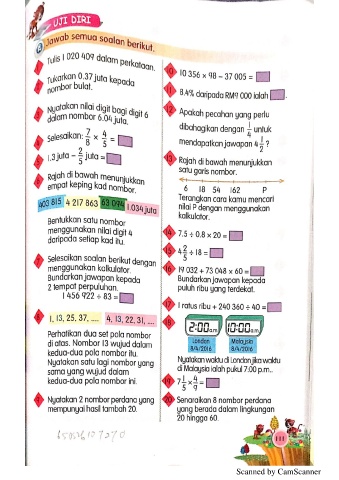 UJI DIRI
Jawab semua soalan berikut.
1 Tulis 1 020 409 dalam perkataan.
2 Tukarkan 0.37 juta kepada
nombor bulat.
3 Nyatakan nilai digit bagi digit 6
dalam nombor 6.04 juta.
4 Selesaikan: 7/8 × 4/5 =
5 1.3 juta − 2/5 juta =
6 Rajah di bawah menunjukkan
empat keping kad nombor.
403 815 4 217 863 63 094 1.034 juta
Bentukkan satu nombor
menggunakan nilai digit 4
daripada setiap kad itu.
7 Selesaikan soalan berikut dengan
menggunakan kalkulator.
Bundarkan jawapan kepada
2 tempat perpuluhan.
1 456 922 ÷ 83 =
8 1, 13, 25, 37, .... 4, 13, 22, 31, ....
Perhatikan dua set pola nombor
di atas. Nombor 13 wujud dalam
kedua-dua pola nombor itu.
Nyatakan satu lagi nombor yang
sama yang wujud dalam
kedua-dua pola nombor ini.
9 Nyatakan 2 nombor perdana yang
mempunyai hasil tambah 20.
10 10 356 × 98 − 37 005 =
11 8.4% daripada RM9 000 ialah
12 Apakah pecahan yang perlu
dibahagikan dengan 1/4 untuk
mendapatkan jawapan 4 1/2 ?
13 Rajah di bawah menunjukkan
satu garis nombor.
6 18 54 162 P
Terangkan cara kamu mencari
nilai P dengan menggunakan
kalkulator.
14 7.5 ÷ 0.8 × 20 =
15 4 2/5 ÷ 18 =
16 19 032 + 73 048 × 60 =
Bundarkan jawapan kepada
puluh ribu yang terdekat.
17 1 ratus ribu + 240 360 ÷ 40 =
18 2:00 a.m. 10:00 a.m.
London Malaysia
8/4/2016 8/4/2016
Nyatakan waktu di London jika waktu
di Malaysia ialah pukul 7:00 p.m..
19 7 1/5 × 4/9 =
20 Senaraikan 8 nombor perdana
yang berada dalam lingkungan
20 hingga 60.
111
Scanned by CamScanner